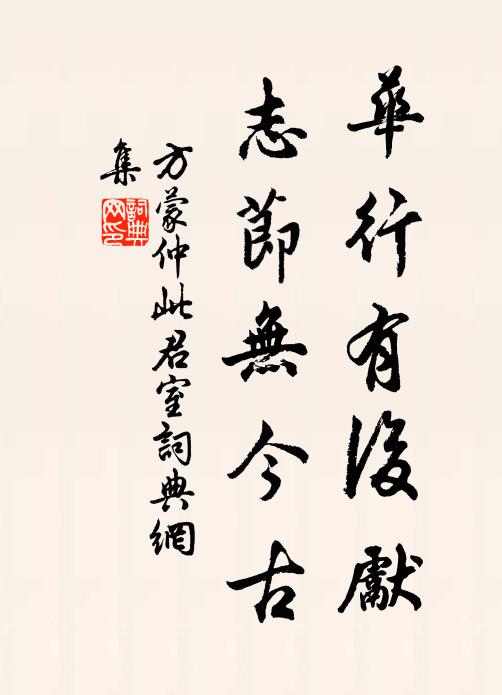 華行有後獻
志節無今古
方蒙仲此君室詞典網
集
詞典
网印